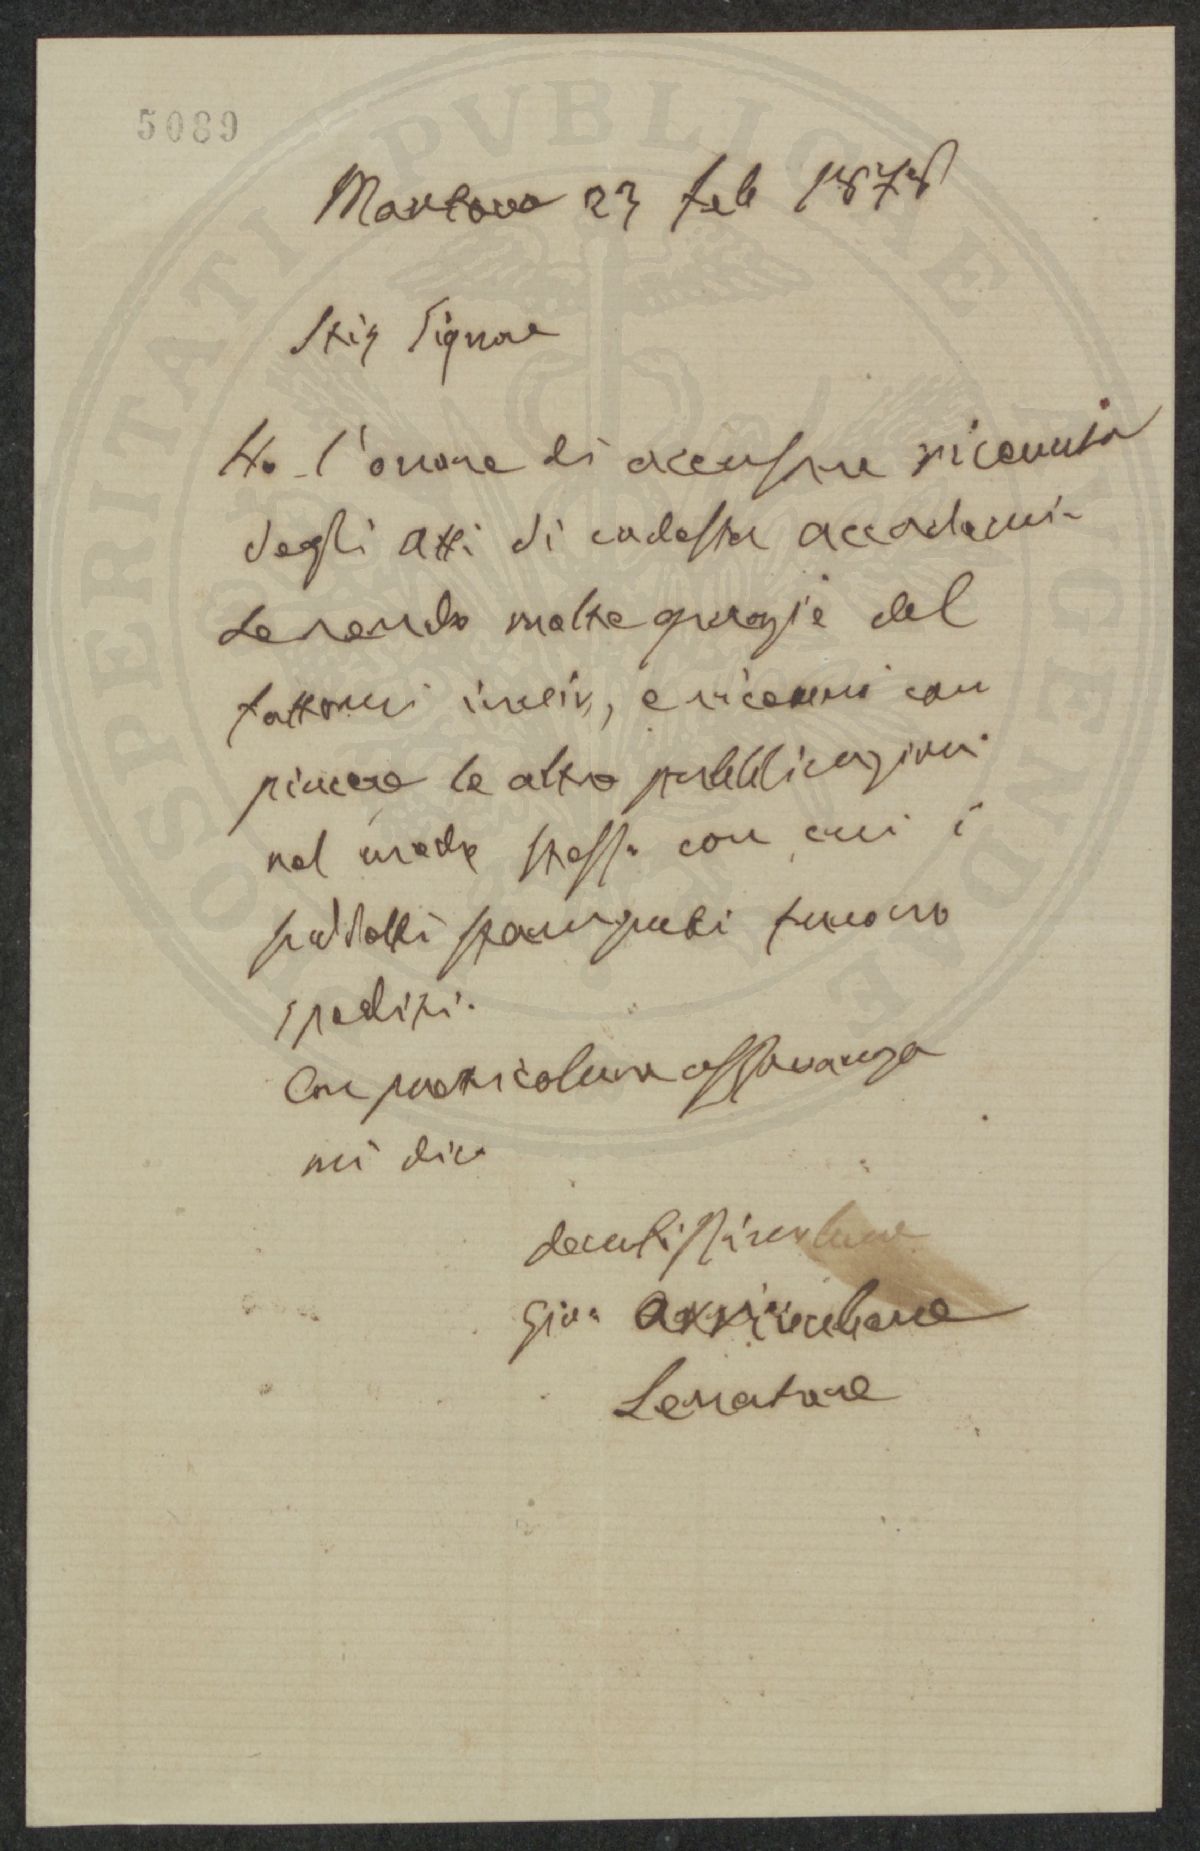 5089
PROSPERITATI PVBLICAE AVGENDAE
Mantova 23 feb 1878
Signore
Ho l'onore di accusare ricevuta
degli Atti di codesta accademi-
molte grazie del
fattomi invio, e ricevero con
piacere le altre pubblicazioni
nel modo stesso con cui i
suddetti stampati furono
spediti.
Con particolare osservanza
mi dico
devotissimo
Gio. Arrivabene
Senatore